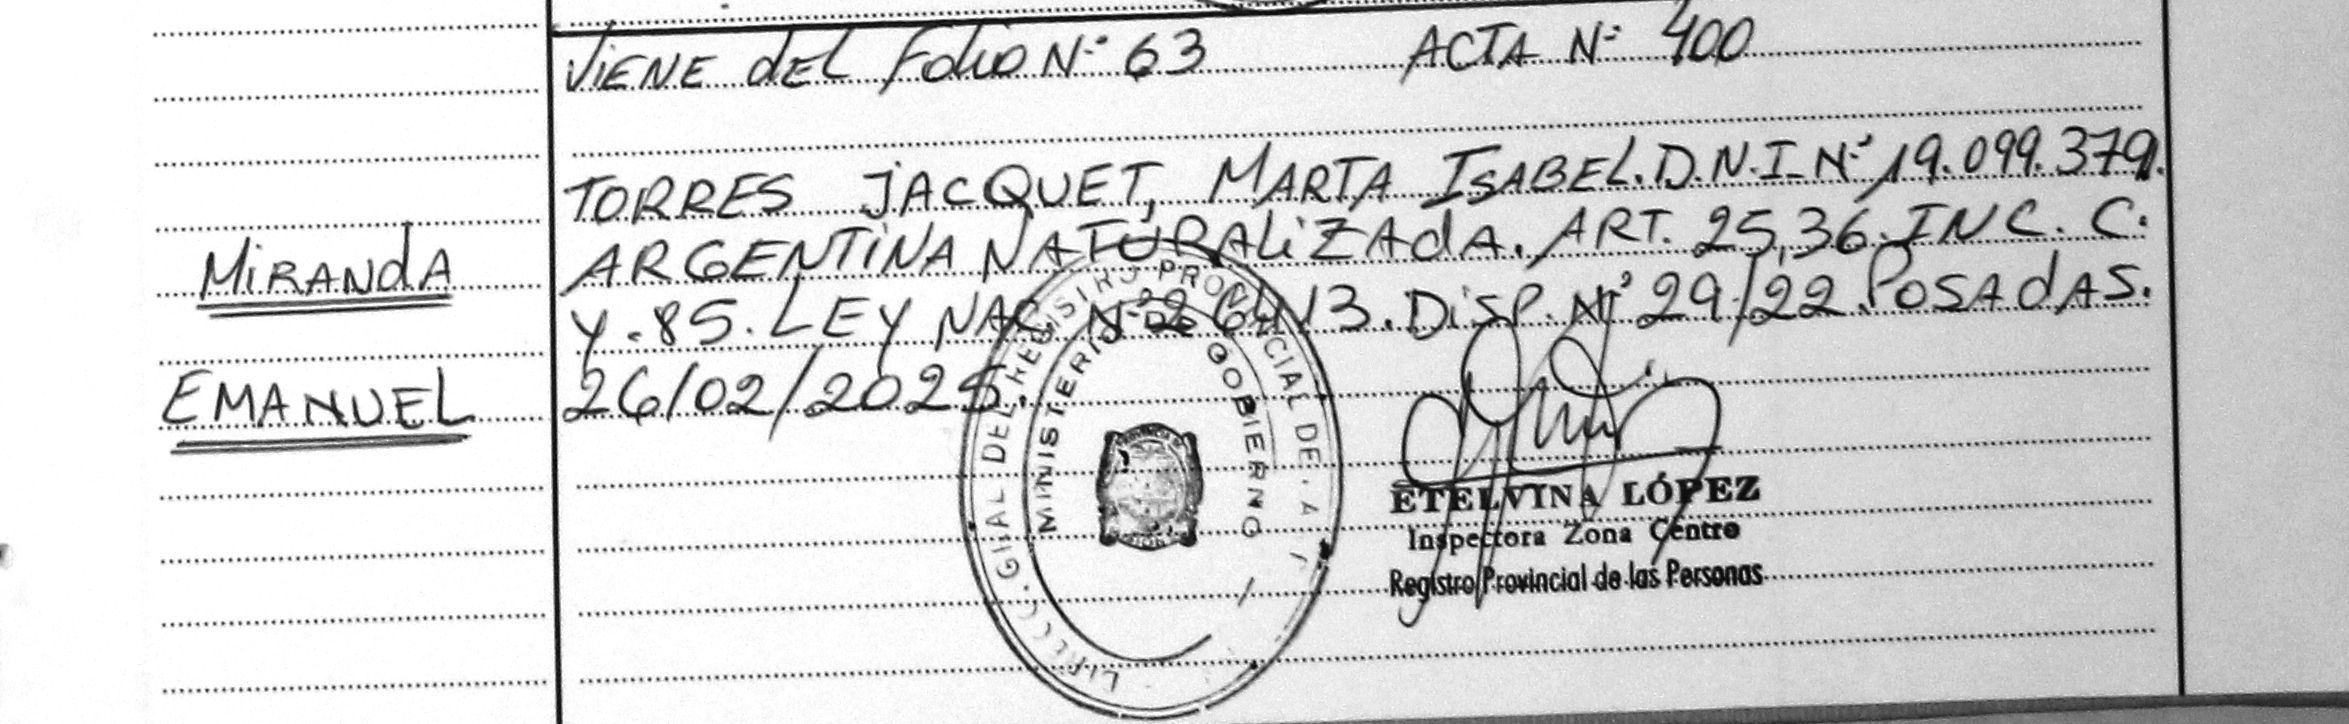 ViENE dEL Folio N° 63 ACTA N° 400
TORRES JACQUET, MARTA ISABEL. D.N.I. N° 19.099.379.
ARGENTiNA NATURALiZAdA. ART. 25,36. INC. C.
Y. 85. LEY NAC. N° 26413. DiSP. N° 29/22. POSAdAS.
26/02/2025.
MiRANdA
EMANUEL
MINISTERIO DE GOBIERNO
ETELVINA LÓPEZ
Inspectora Zona Centro
Registro Provincial de las Personas